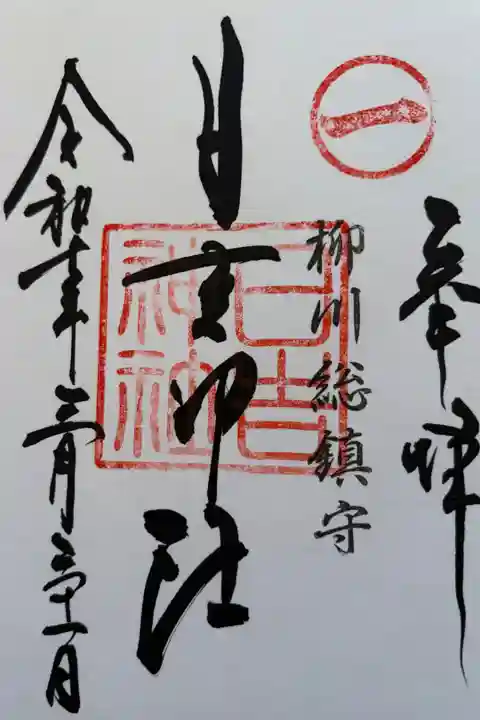 奉拝
一
柳川総鎮守
日吉神社
日吉神社
令和六年三月三十一日